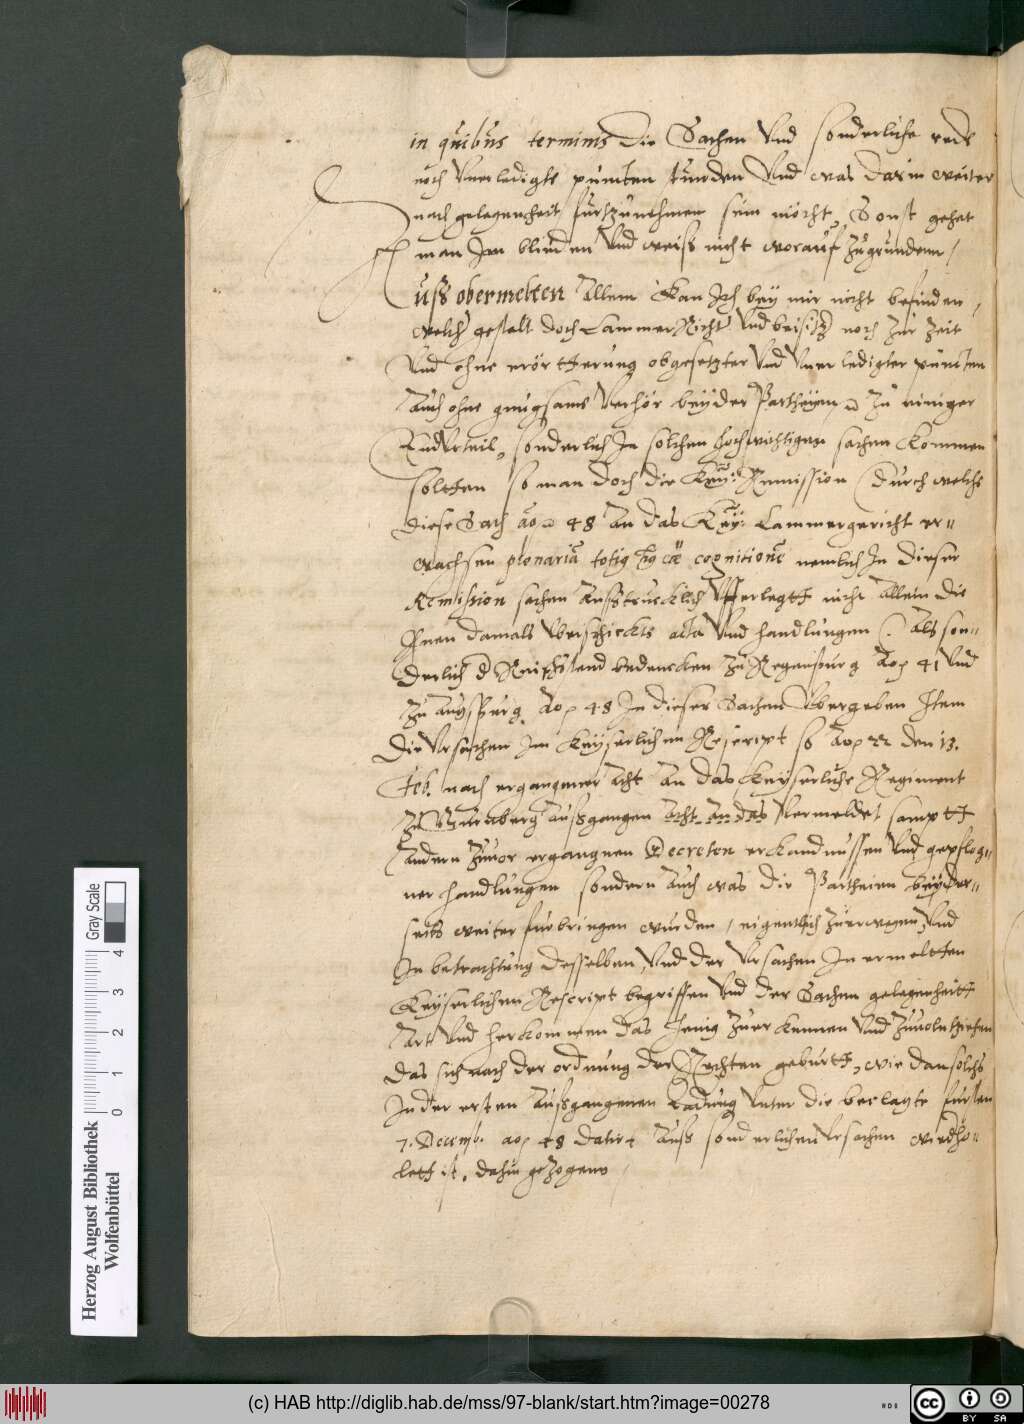 in quibus terminis die Sachen Vnd sonderliche
noch Vnerledigte puncten stunden Vnd was darin weiter
nach gelegenheit furtzunehmen sein möcht, Sonst gehet
man Im blinden Vnd weiss nicht worauf Zugrunden /
Uss obermelten Allem Kan Ich bey mir nicht befinden,
welcher gestalt doch Cammer Richter Vnd beisitz noch Zur Zeit
Vnd ohne erörtterung obgesetzter Vnd Vnerledigter puncten
Auch ohne gnugsams Verhör beyder Partheyen Zu einiger
EndVrteil, sonderlich In solchen hochwichtigen sachen Kommen
soltten so man doch die Key: Remission (durch welche
diese Sach ao 48 An das Key: Cammergericht er=
wachsen plenariā totig cognitionē nemlich In dieser
Remission sachen Ausstrucklich Vfferlegtt nicht Allein die
Ihnen damals Vberschickts acta Vnd handlungen (: Als son=
derlich d Reichstend bedencken Zu Regenspurg Ao 41 Vnd
Zu Augspurg Ao 48 In dieser Sachen Vbergeben Item
Die Vrsachen Im Keyserlichen Rescript so Ao 22 den 13.
Feb. nach ergangener Acht An das Keyserliche Regiment
Zu Nurnberg Aussgangen Acht An das Vermeldet samptt
Andern Zuuor ergangnen Decreten erkandnussen Vnd gepflog=
ner handlungen sondern Auch was die Partheien beyder=
seits weiter furbringen wurden / eigentlich Zuerwegen, Vnd
In betrachtung desselben, Vnd der Vrsachen In ermeltten
Keyserlichen Rescript begriffen Vnd der Sachen gelegenheitt
Art Vnd herkommen das Jenig Zuerkennen Vnd Zuuolntziehen
das sich nach der ordnung der Rechten geburtt, wie dan solchs
In der ersten Aussgangenen Ladung Vnter die beclagte fursten
7. Decemb. ao 48 datirt Auss sonderlichen Vrsachen widho=
lett ist, dahin gezogenn /
Herzog August Bibliothek
Wolfenbüttel
Gray Scale
0 1 2 3 4
(c) HAB http://diglib.hab.de/mss/97-blank/start.htm?image=00278
cc BY SA